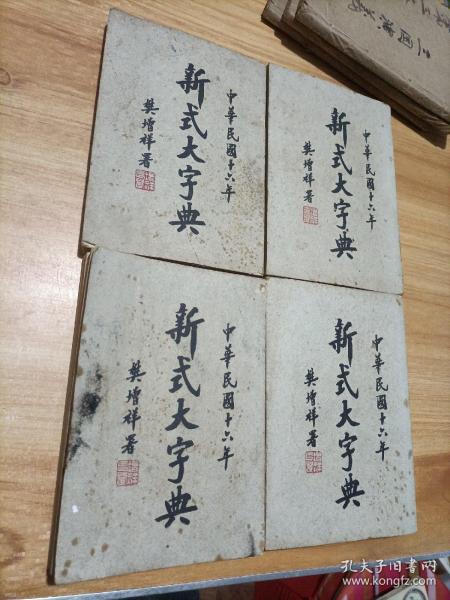 中華民國十六年
新式大字典
樊增祥署
中華民國十六年
新式大字典
樊增祥署
中華民國十六年
新式大字典
樊增祥署
中華民國十六年
新式大字典
樊增祥署
孔夫子旧书网
www.kongfz.com